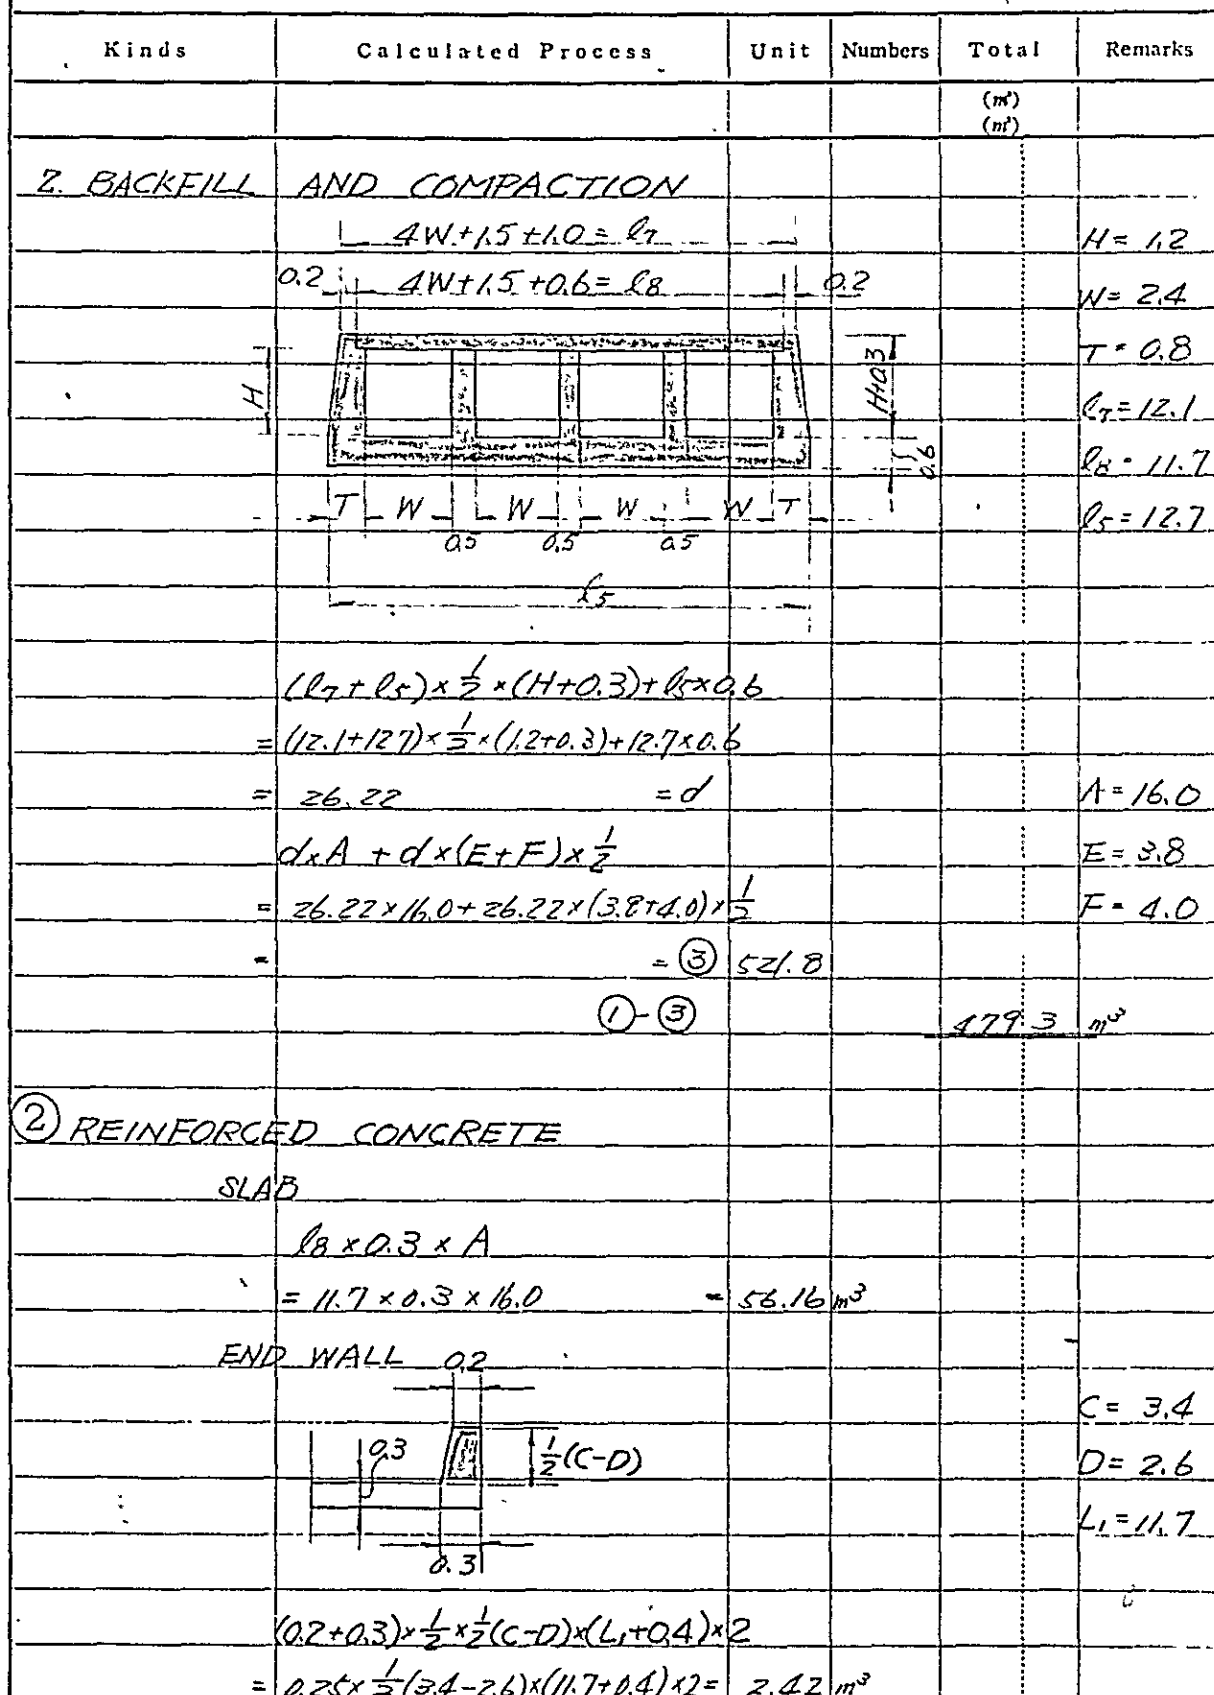 Kinds Calculated Process Unit Numbers Total Remarks
(m²)
(m³)
2. BACKFILL AND COMPACTION
4W+1.5+1.0=l7 H=1.2
0.2 4W+1.5+0.6=l8 0.2 W=2.4
T=0.8
H H+0.3 l7=12.1
0.6 l8=11.7
T W W W W T l5=12.7
0.5 0.5 0.5
l5
(l7+l5)×1/2×(H+0.3)+l5×0.6
=(12.1+12.7)×1/2×(1.2+0.3)+12.7×0.6
= 26.22 =d A=16.0
d×A+d×(E+F)×1/2 E=3.8
= 26.22×16.0+26.22×(3.8+4.0)×1/2 F=4.0
= =③ 521.8
①-③ 479.3 m³
② REINFORCED CONCRETE
SLAB
l8×0.3×A
=11.7×0.3×16.0 = 56.16 m³
END WALL 0.2
C=3.4
0.3 1/2(C-D) D=2.6
L1=11.7
0.3
(0.2+0.3)×1/2×1/2(C-D)×(L1+0.4)×2
= 0.25×1/2(3.4-2.6)×(11.7+0.4)×2= 2.42 m³